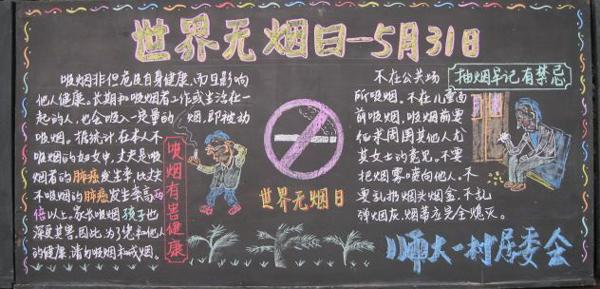 世界无烟日—5月31日
吸烟非但危及自身健康,而且影响
他人健康。长期和吸烟者工作或生活在一
起的人,也会吸入一定量的烟,即被动
吸烟。据统计在本人不
吸烟的妇女中,丈夫是吸
烟者的肺癌发生率,比丈夫
不吸烟的肺癌发生率高两
倍以上。家长吸烟孩子也
深受其害。因此,为了您和他人
的健康,请勿吸烟和戒烟。
吸烟有害健康
世界无烟日
抽烟牢记有禁忌
不在公共场
所吸烟。不在儿童面
前吸烟。吸烟前要
征求周围其他人尤
其女士的意见。不要
把烟雾喷向他人。不
要乱扔烟头烟盒,不乱
弹烟灰,烟蒂应完全熄灭。
师大一村居委会